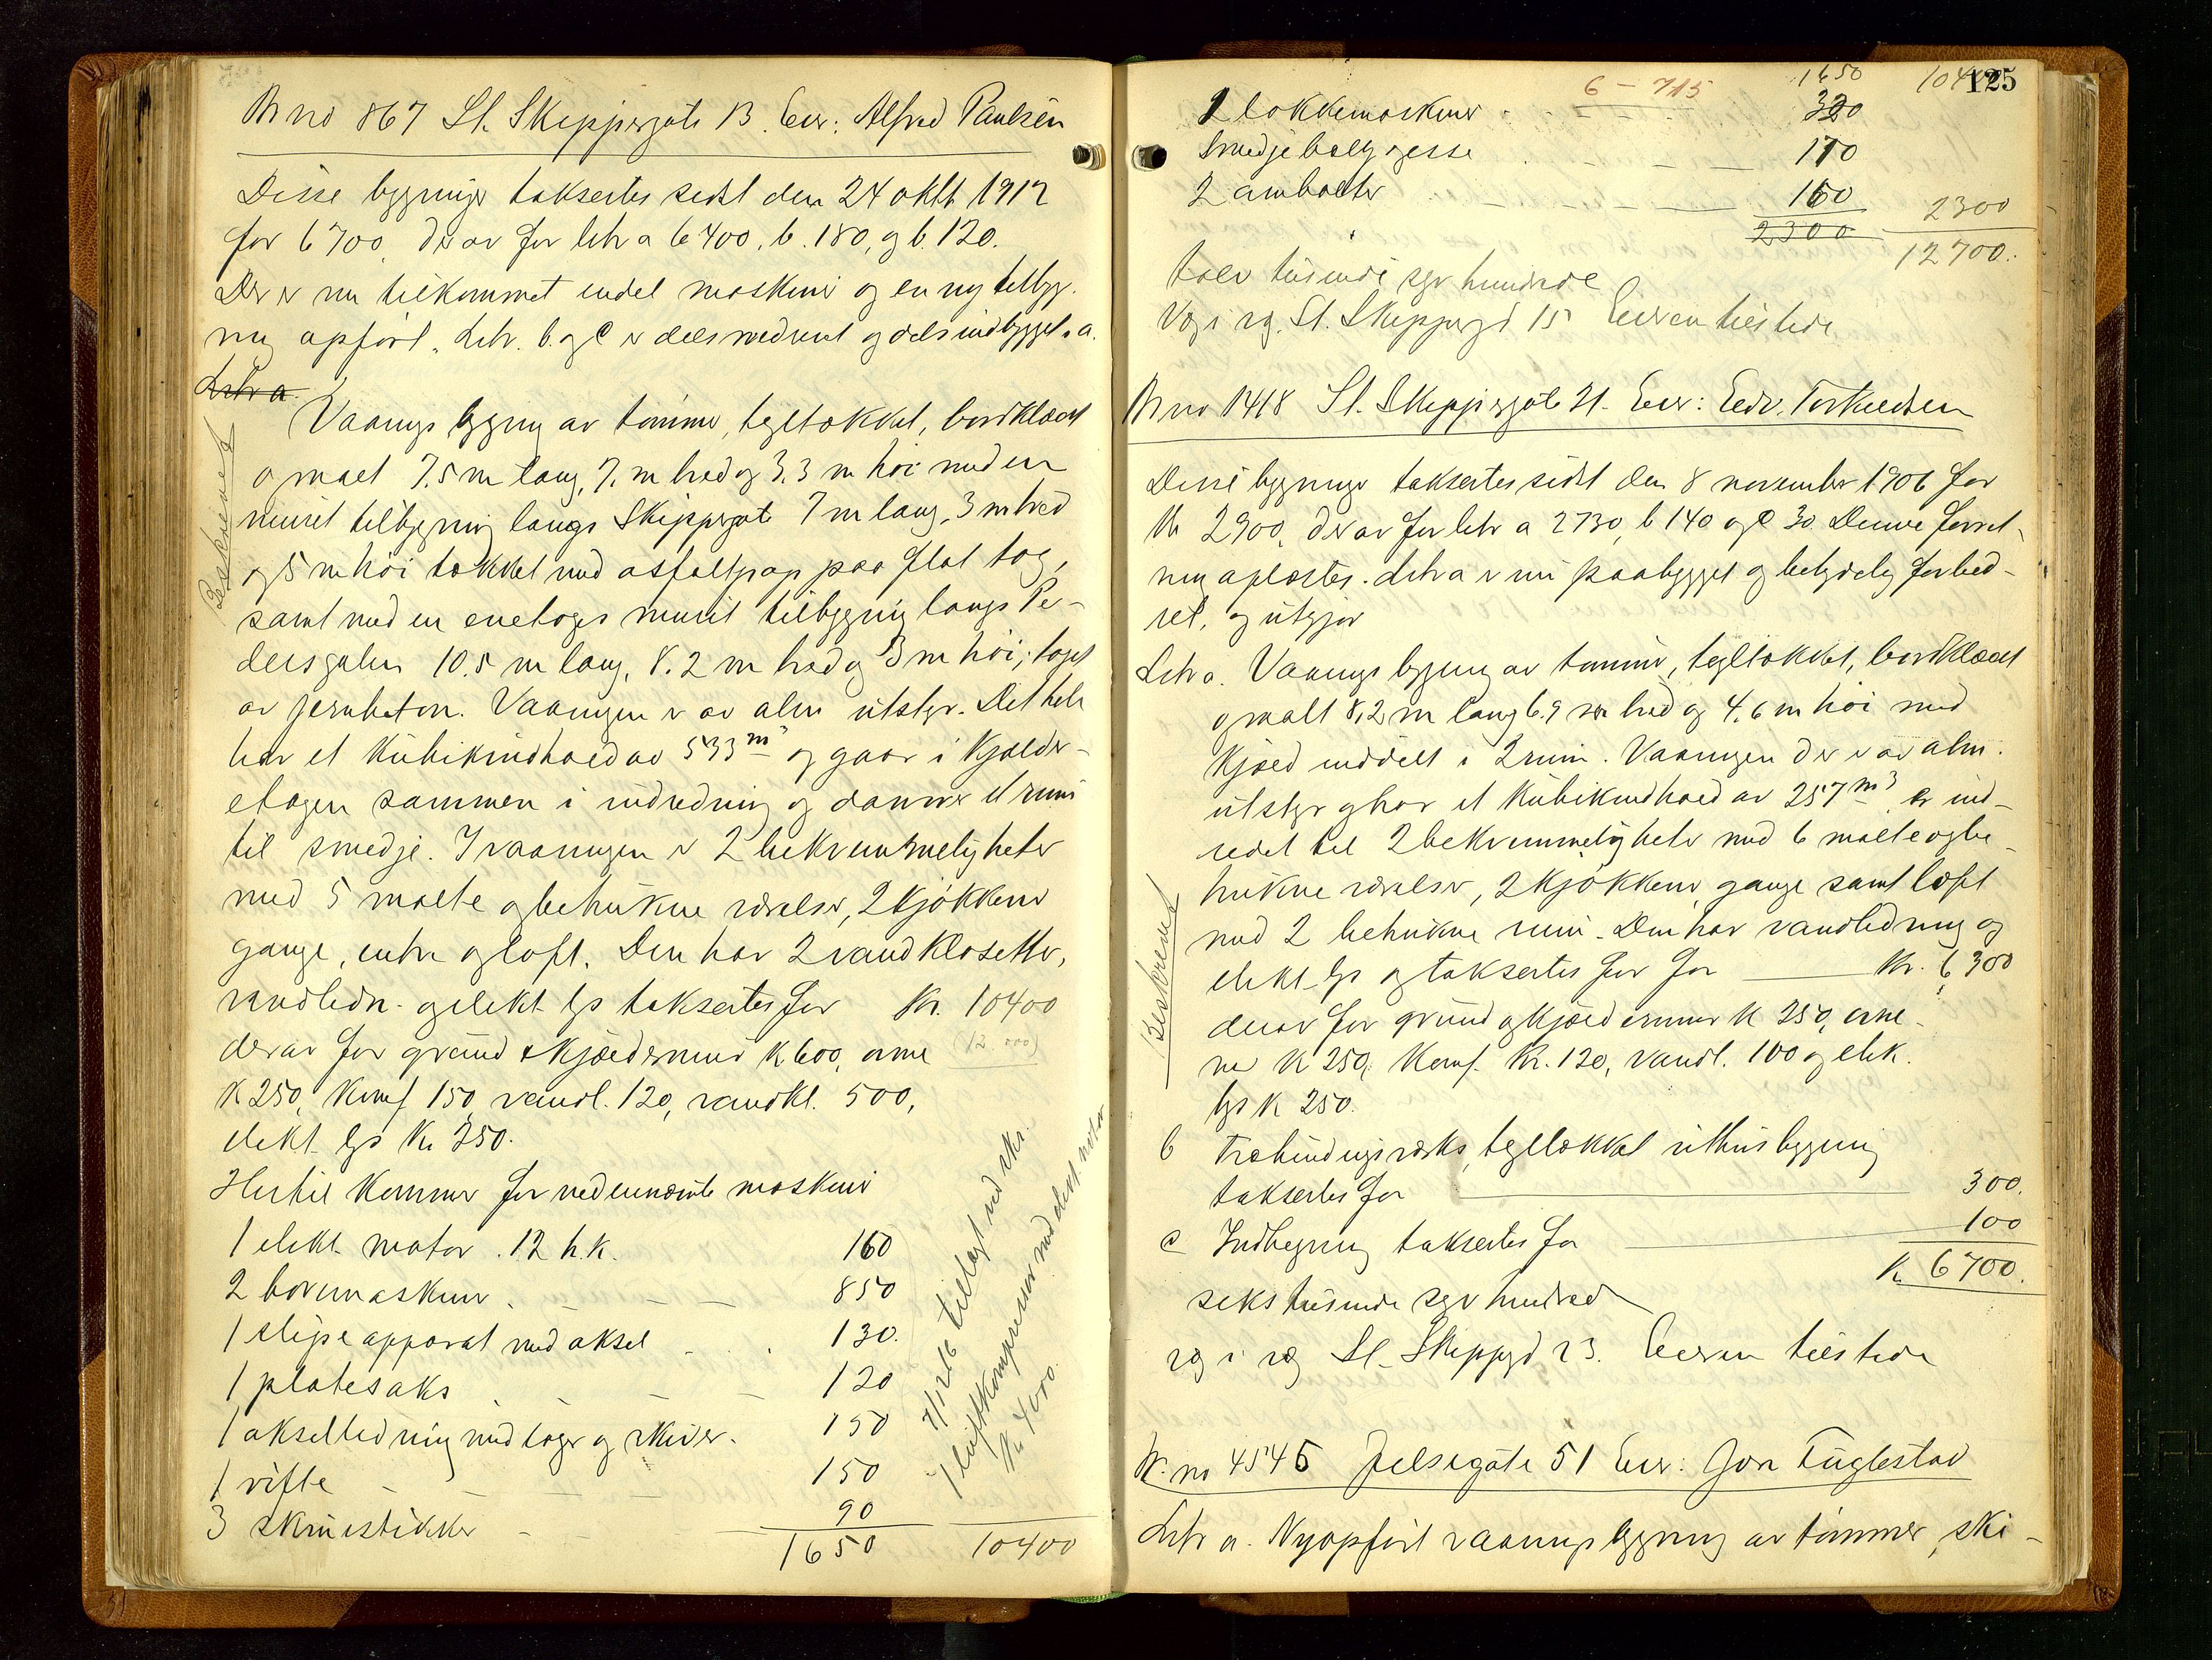 Br no 867 St. Skippergate 13. Eier: Alfred Paulsen
Disse bygninger taksertes sidst den 24 oktb 1912
for 6700, derav for litr a 6400, b. 180, og b. 120.
Der er nu tilkommet endel maskiner og en ny tilbyg-
ning opført. Litr. b. og c er dels nedrevet og dels indbygget i a.
Litr a.
Beskrevet
Vaanings bygning av tømmer, tegltækket, bordklædt
og malt 7.5 m lang, 7. m bred og 3.3 m høi med en
muret tilbygning langs Skippergate 7 m lang, 3 m bred
og 5 m høi tækket med asfaltpap paa flat tag,
samt med en enetages muret tilbygning langs Pe-
dersgaten 10.5 m lang, 8.2 m bred og 3 m høi; taget
av jernbeton. Vaaningen er av alm utstyr. Det hele
har et kubikindhold av 533 m³ og gaar i kjælder-
etagen sammen i indredning og danner et rum
til smedje. I vaaningen er 2 bekvemmeligheter
med 5 malte og betrukne værelser, 2 kjøkkener
gange, entre og loft. Den har 2 vandklosetter,
vandledn. og elekt. lys taksertes for Kr. 10400
derav for grund & kjældermur K 600, ovne (12.000)
K 250, Komf 150, vandl. 120, vandkl. 500,
elekt. lys Kr 250.
Hertil kommer for nedennævnte maskiner
1 elekt. motor. 12 h.k. 160
2 boremaskiner. 850
1 slipe apparat med aksel 130.
1 platesaks 120
1 akselledning med lager og skiver. 150
1 vifte 150
3 skruestikker 90
1650 10400
7/12 26 tillagt ved eks.
1 luftkompressor med elekt. motor
Kr 4000.
125
6 - 715 1650 10400
2 lokkemaskiner 320
Smedjebælg og esse 170
2 ambolter 160
2300 2300
12700.
tolv tusinde syv hundrede
Væg i væg. St. Skippergd 15 Eieren tilstede
Br no 1418 St. Skippergate 21. Eier: Edv. Torkildsen
Disse bygninger taksertes sidst den 8 november 1906 for
Kr 2900, derav for litr a 2730, b 140 og c 30. Denne forret-
ning opløstes. Litr a er nu paabygget og betydelig forbed-
ret, og utgjør
Litr a. Vaanings bygning av tømmer, tegltækket, bordklædt
og malt 8,2 m lang 6.9 m bred og 4.6 m høi med
Kjæld inddelt i 2 rum. Vaaningen der er av alm.
utstyr og har et kubikindhold av 257 m³ er ind-
redet til 2 bekvemmeligheter med 6 malte og be-
trukne værelser, 2 kjøkkener, gange samt loft
Beskrevet
med 2 betrukne rum. Den har vandledning og
elekt. lys og taksertes for for Kr. 6300
derav for grund og kjældermur K 250, ovne-
ne K 250, Komf. Kr. 120, vandl. 100 og elek.
lys K 250.
b Træbindingsværks, tegltækket uthusbygning
taksertes for 300.
c Indhegning taksertes for 100
K 6700.
seks tusinde syv hundrede
væg i væg St. Skippgd 23. Eieren tilstede
Br. no 4545 Jelsegate 51 Eier: Jon Fuglestad
Litr a. Nyopført vaaningsbygning av tømmer, ski-